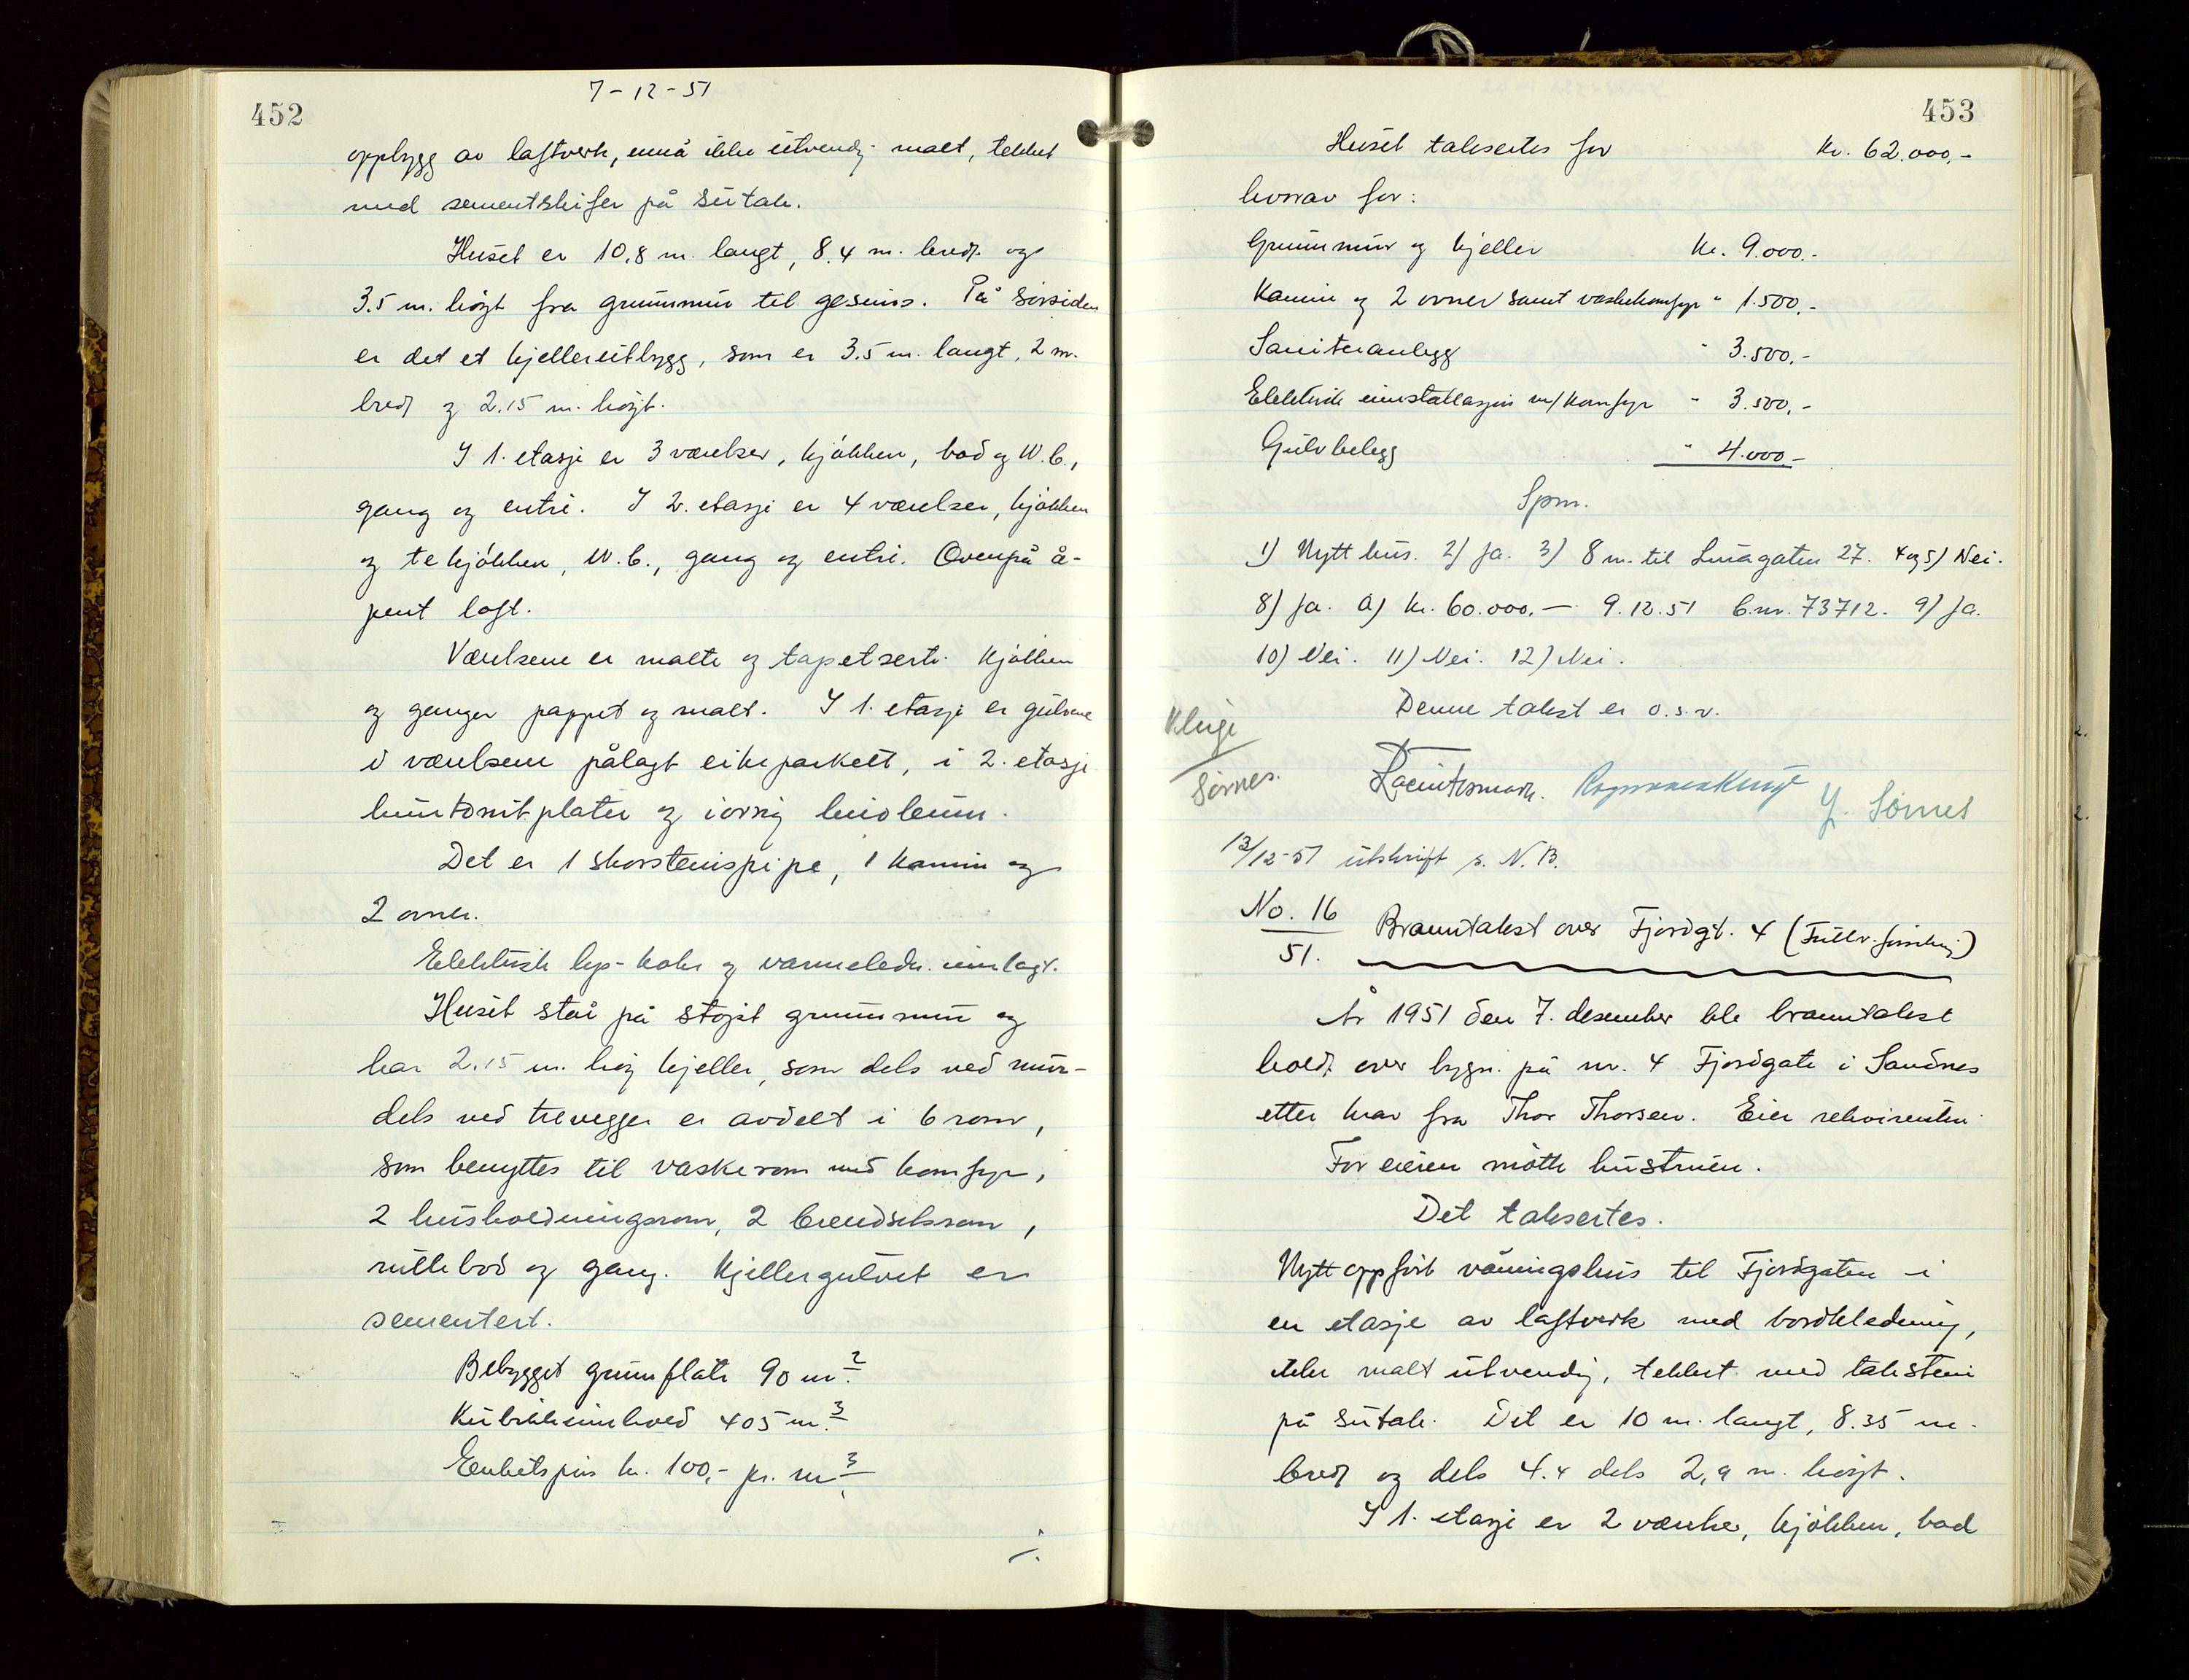 452
7-12-51
opplygg av laftverk, ennå ikke utvendig malt, tekket
med sementskifer på sutak.
Huset er 10,8 m. langt, 8.4 m. bredt og
3.5 m. høgt fra grunnmur til gesims. På sørsiden
er det et kjellerutbygg, som er 3.5 m. langt, 2 m.
bredt og 2.15 m. høgt.
I 1. etasje er 3 værelser, kjøkken, bad og W.C.,
gang og entré. I 2. etasje er 4 værelser, kjøkken
og tekjøkken, W.C., gang og entré. Ovenpå å-
pent loft.
Værelsene er malte og tapetserte. Kjøkken
og ganger pappet og malt. I 1. etasje er gulvene
i værelsene pålagt eikeparkett, i 2. etasje
huntonitplater og iøvrig linoleum.
Det er 1 skorsteinspipe, 1 kamin og
2 ovner.
Elektrisk lys- koke og varmeledn. innlagt.
Huset står på støpt grunnmur og
har 2.15 m. høg kjeller, som dels ved mur-
dels ved trevegger er avdelt i 6 rom,
som benyttes til vaskerom med komfyr,
2 husholdningsrom, 2 brendselsrom,
rullebod og gang. Kjellergulvet er
sementert.
Bebygget grunnflate 90 m²
Kubikkinnhold 405 m³
Enhetspris kr. 100,- pr. m³
./.
453
Huset taksertes for kr. 62.000,-
hvorav for:
Grunnmur og kjeller kr. 9.000.-
Kamin og 2 ovner samt vaskekomfyr " 1.500,-
Saniteranlegg " 3.500,-
Elektrisk innstallasjon m/komfyr " 3.500,-
Gulvbelegg " 4.000-
Spm.
1) Nytt hus. 2) Ja. 3) 8 m. til Luragaten 27. 4 og 5) Nei.
8) Ja. a) kr. 60.000,- 9.12.51 b. nr. 73712. 9) Ja.
10) Nei. 11) Nei. 12) Nei.
Denne takst er o.s.v.
Kluge
Sørnes.
Y. Sørnes
13/12-51 utskrift s. N.B.
No. 16
51.
Branntakst over Fjordgt. 4 (Fullv. forsikring)
År 1951 den 7. desember ble branntakst
holdt over bygn. på nr. 4 Fjordgate i Sandnes
etter krav fra Thor Thorsen. Eier rekvirenten.
For eieren møtte hustruen.
Det taksertes.
Nytt oppført våningshus til Fjordgaten i
en etasje av laftverk med bordkledning,
ikke malt utvendig, tekket med takstein
på sutak. Det er 10 m. langt, 8.35 m.
bredt og dels 4.4 dels 2,9 m. høgt.
I 1. etasje er 2 værelser, kjøkken, bad